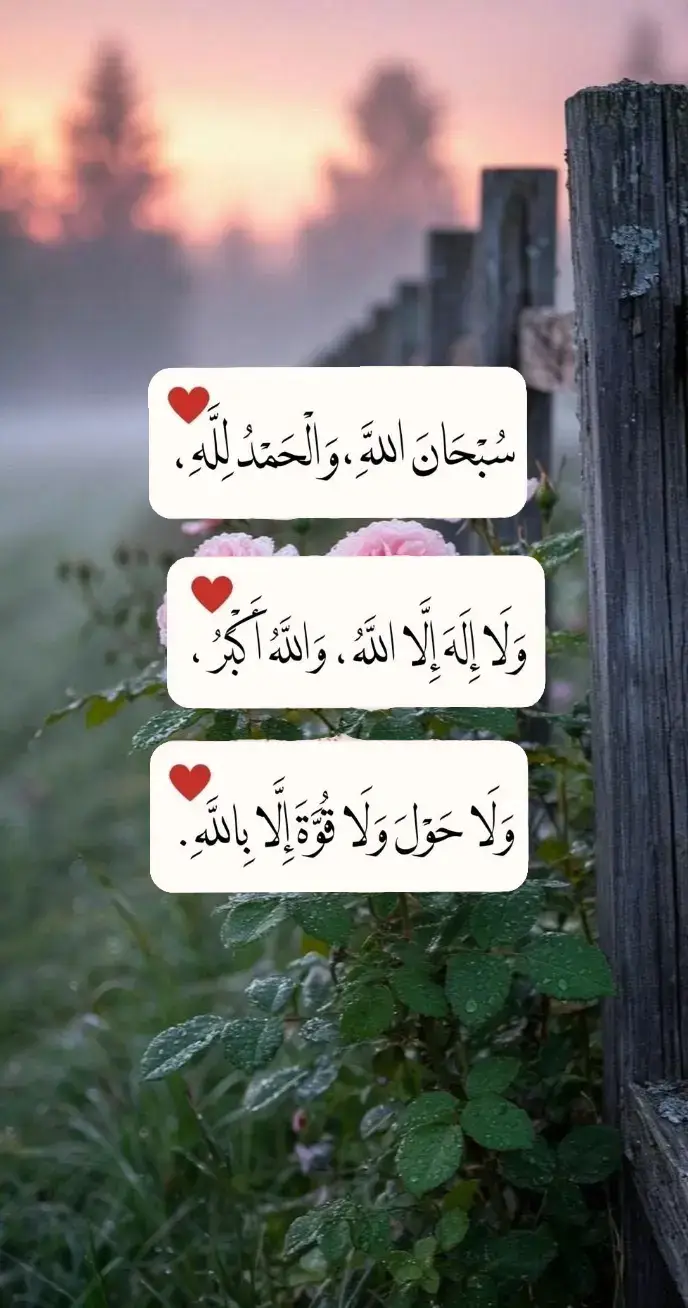 سُبْحَانَ اللهَِّ، وَالْحَمْدُ لِلَّهِ،
وَلَا إِلَهَ إِلَّا اللَّهُ، وَاللَّهُ أَكْبَرُ،
وَلَا حَوْلَ وَلَا قُوَّةَ إِلَّا بِاللَّهِ.